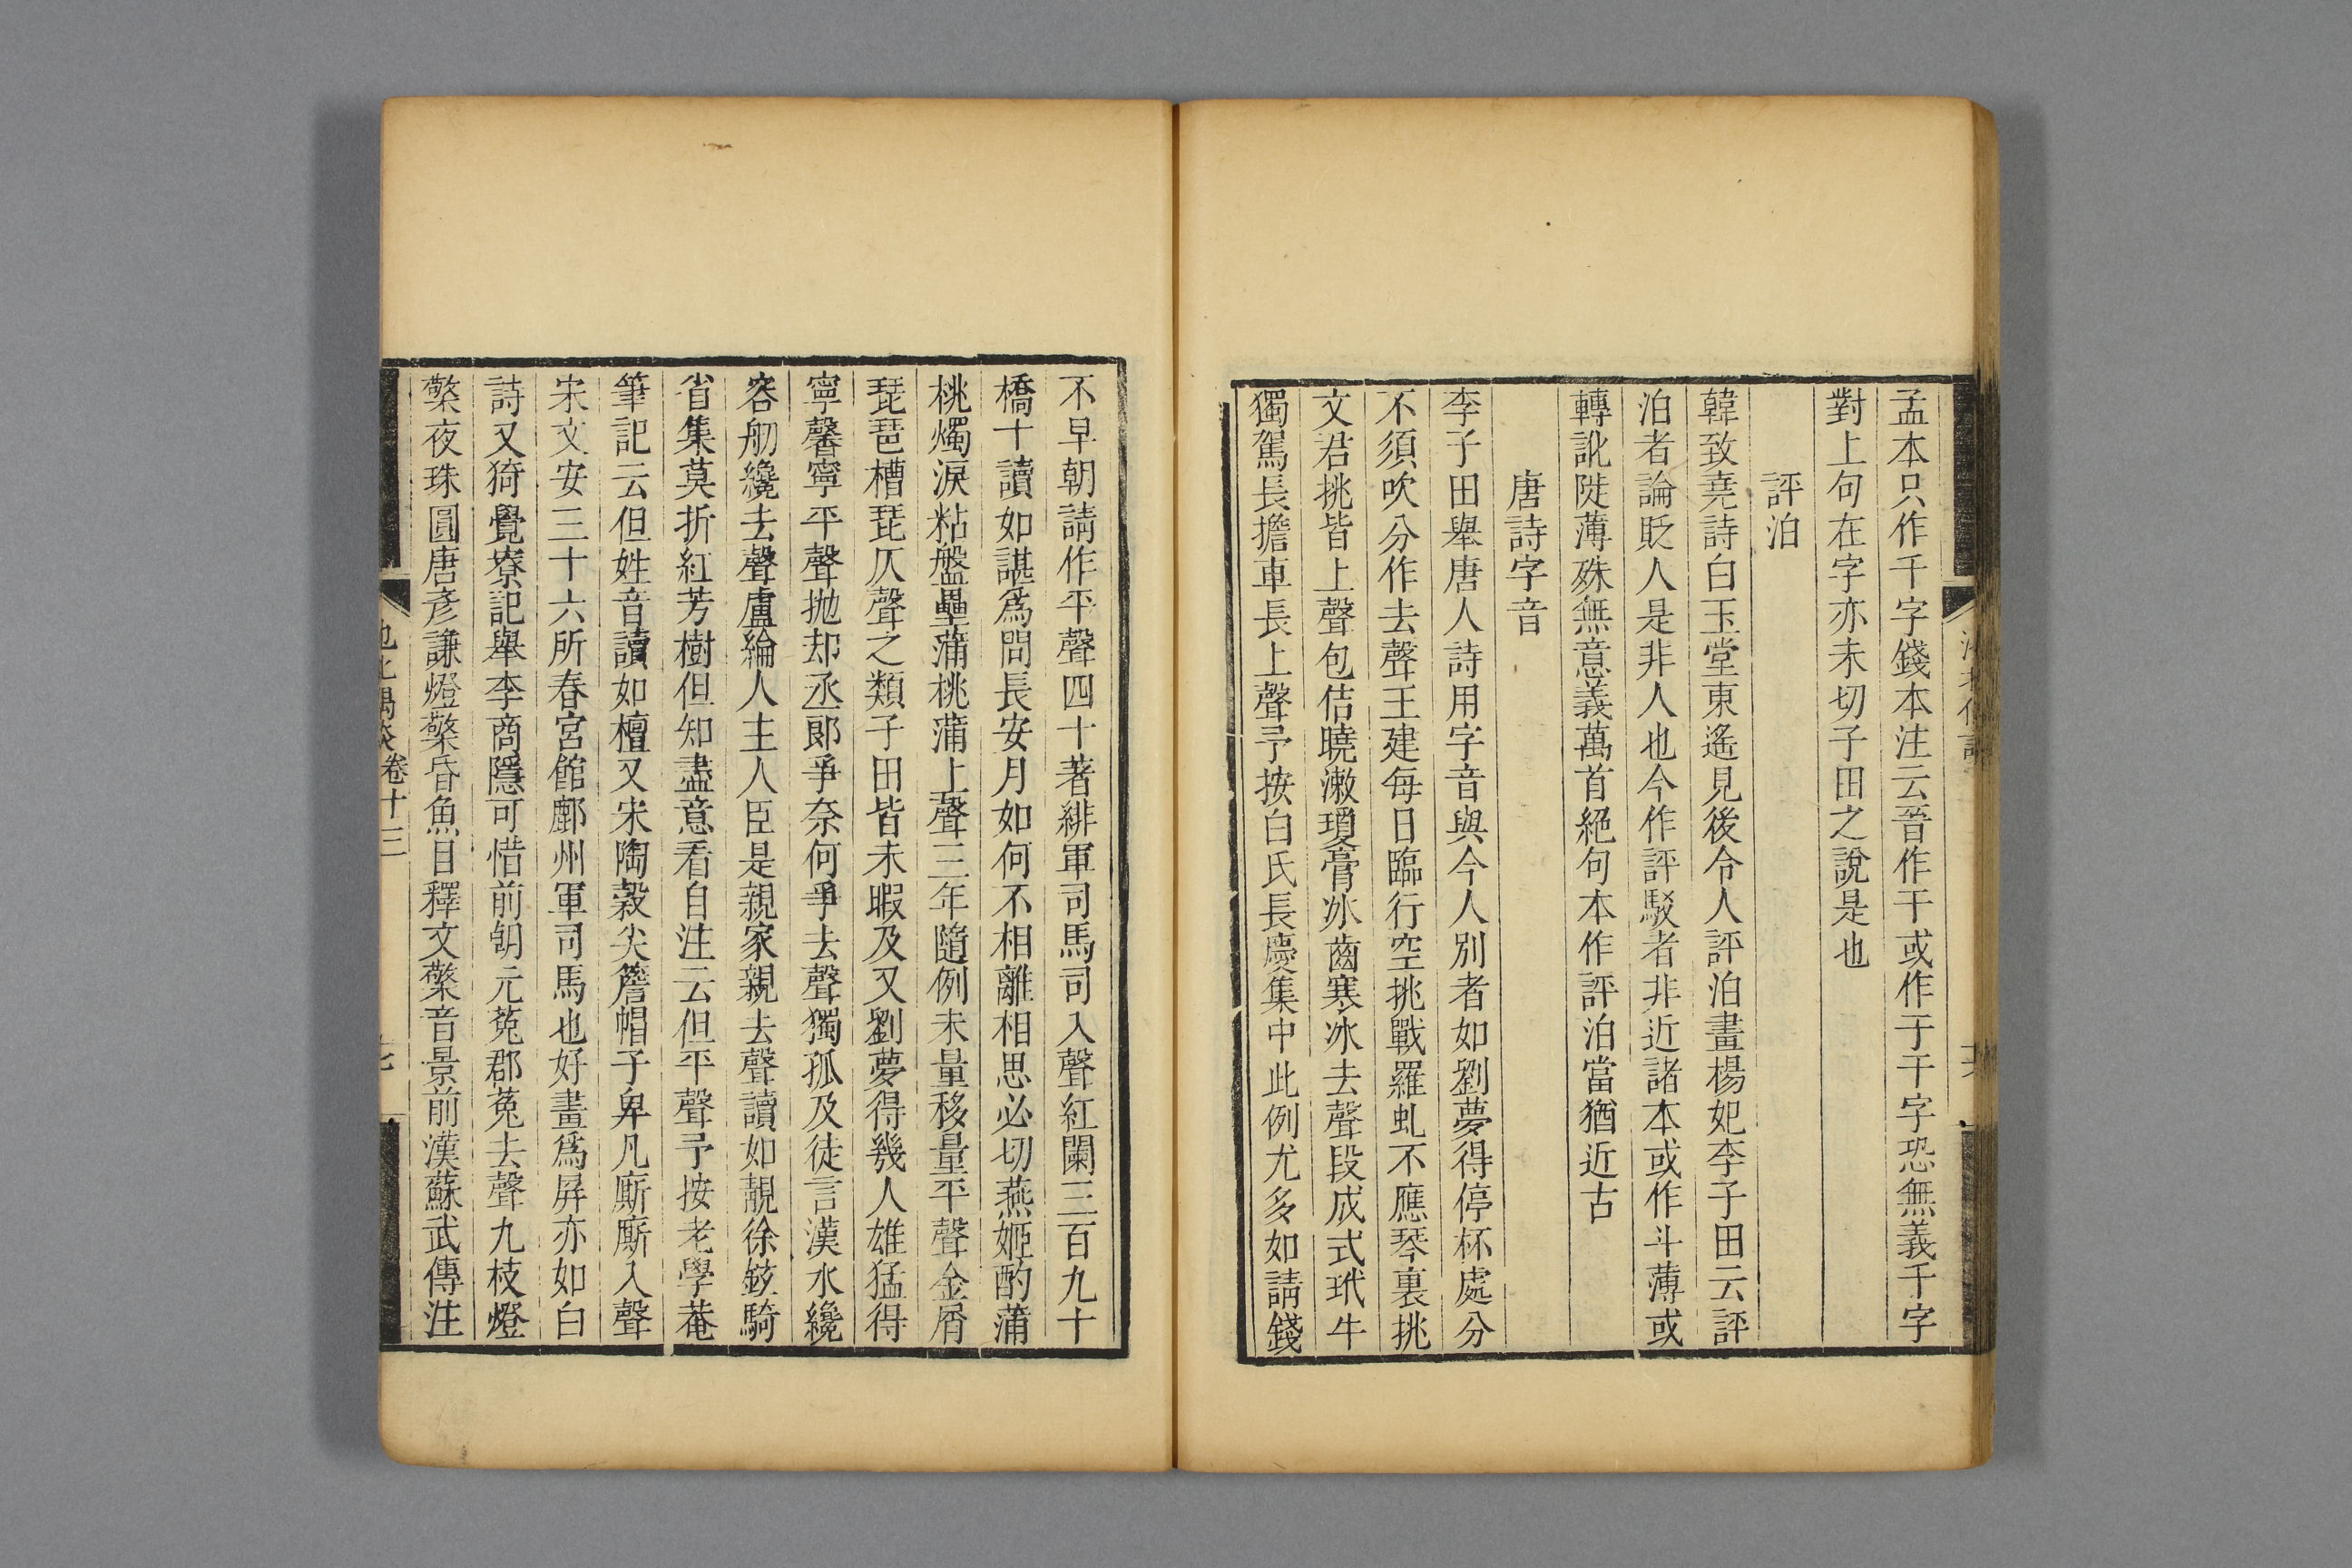 孟本只作千字錢本注云晉作干或作于干字恐無義千字
對上句在字亦未切子田之說是也
評泊
韓致堯詩白玉堂東遙見後令人評泊畫楊妃李子田云評
泊者論貶人是非人也今作評駁者非近諸本或作斗薄或
轉訛陡薄殊無意義萬首絕句本作評泊當猶近古
唐詩字音
李子田舉唐人詩用字音與今人別者如劉夢得停杯處分
不須吹分作去聲王建每日臨行空挑戰羅虬不應琴裏挑
文君挑皆上聲包佶曉漱瓊膏冰齒寒冰去聲段成式玳牛
獨駕長擔車長上聲予按白氏長慶集中此例尤多如請錢
不早朝請作平聲四十著緋軍司馬司入聲紅闌三百九十
橋十讀如諶爲問長安月如何不相離相思必切燕姬酌蒲
桃燭淚粘盤壘蒲桃蒲上聲三年隨例未量移量平聲金屑
琵琶槽琵仄聲之類子田皆未暇及又劉夢得幾人雄猛得
寧馨寧平聲拋却丞郎爭奈何爭去聲獨孤及徒言漢水纔
容舠纔去聲盧綸人主人臣是親家親去聲讀如靚徐鉉騎
省集莫折紅芳樹但知盡意看自注云但平聲予按老學菴
筆記云但姓音讀如檀又宋陶穀尖簷帽子卑凡廝廝入聲
宋文安三十六所春宮館鄜州軍司馬也好畫爲屛亦如白
詩又猗覺寮記舉李商隱可惜前朝元菟郡菟去聲九枝燈
檠夜珠圓唐彥謙燈檠昏魚目釋文檠音景前漢蘇武傳注
池北偶談卷十三